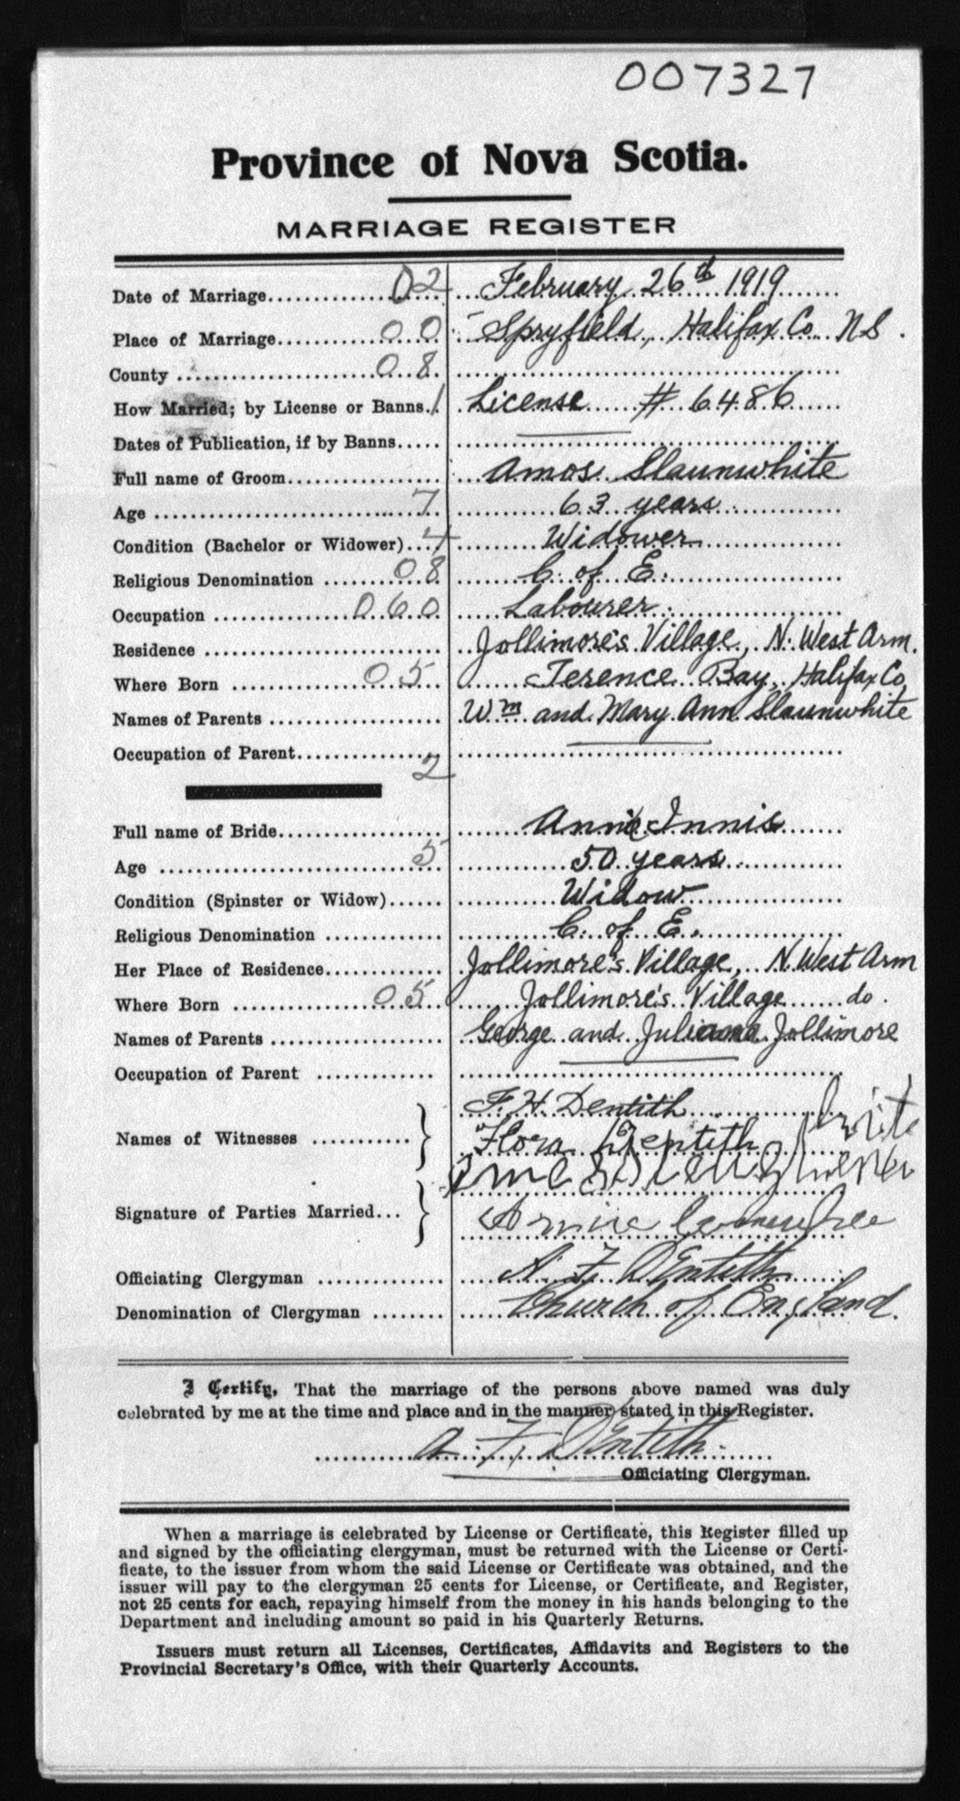 007327
Province of Nova Scotia.
MARRIAGE REGISTER
Date of Marriage 02 February 26th 1919
Place of Marriage 00 Spryfield, Halifax Co. N.S.
County 08
How Married; by License or Banns 1 License # 6486
Dates of Publication, if by Banns
Full name of Groom Amos Slaunwhite
Age 7 63 years
Condition (Bachelor or Widower) 4 Widower
Religious Denomination 08 C. of E.
Occupation 060 Labourer
Residence Jollimore's Village, N. West Arm.
Where Born 05 Terence Bay, Halifax Co
Names of Parents Wm and Mary Ann Slaunwhite
Occupation of Parent
2
Full name of Bride Annie Innis
Age 5 50 years
Condition (Spinster or Widow) Widow
Religious Denomination C. of E.
Her Place of Residence Jollimore's Village, N. West Arm
Where Born 05 Jollimore's Village do.
Names of Parents George and Juliana Jollimore
Occupation of Parent
F. H. Dentith
Names of Witnesses Flora Dentith
Signature of Parties Married
Officiating Clergyman A. F. Dentith
Denomination of Clergyman Church of England.
I Certify, That the marriage of the persons above named was duly
celebrated by me at the time and place and in the manner stated in this Register.
A. F. Dentith
Officiating Clergyman.
When a marriage is celebrated by License or Certificate, this Register filled up
and signed by the officiating clergyman, must be returned with the License or Certi-
ficate, to the issuer from whom the said License or Certificate was obtained, and the
issuer will pay to the clergyman 25 cents for License, or Certificate, and Register,
not 25 cents for each, repaying himself from the money in his hands belonging to the
Department and including amount so paid in his Quarterly Returns.
Issuers must return all Licenses, Certificates, Affidavits and Registers to the
Provincial Secretary's Office, with their Quarterly Accounts.